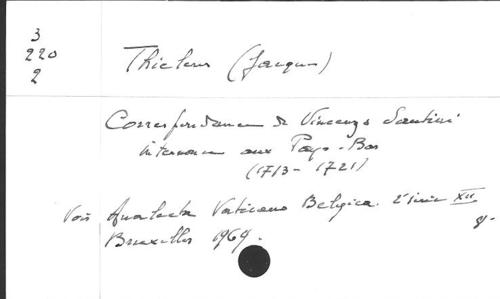 3
220
2
Thielens (Jacques)
Correspondance de Vincenzo Santini
internonce aux Pays-Bas
(1713 - 1721)
Voir Analecta Vaticano Belgica. 2e série XII
Bruxelles 1969.